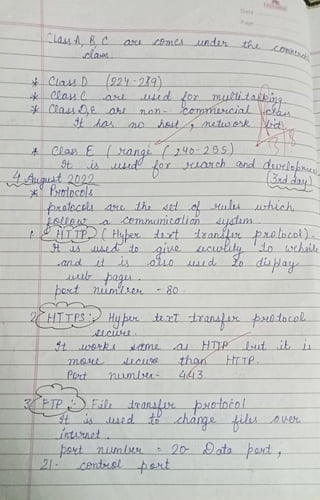 Class A, B, C are comes under the commercial
class.
* Class D (224-239)
* Class C are used for multitasking
* Class D,E are non-commercial class
It has no host, network bits
* Class E (range (240-255)
It is used for rearch and development
4 August 2022 (3rd day)
* Protocols
protocols are the set of rules which
follow a communication system
1. HTTP (Hyper text transfer protocol)-
It is used to give security to website
and it is also used to display
web pages.
port number - 80.
2. HTTPS:- Hyper text transfer protocol
secure.
It works same as HTTP but it is
more secure than HTTP.
Port number- 443.
3. FTP:- File transfer protocol
It is used to change files over
internet.
port number = 20- Data port,
21- control port